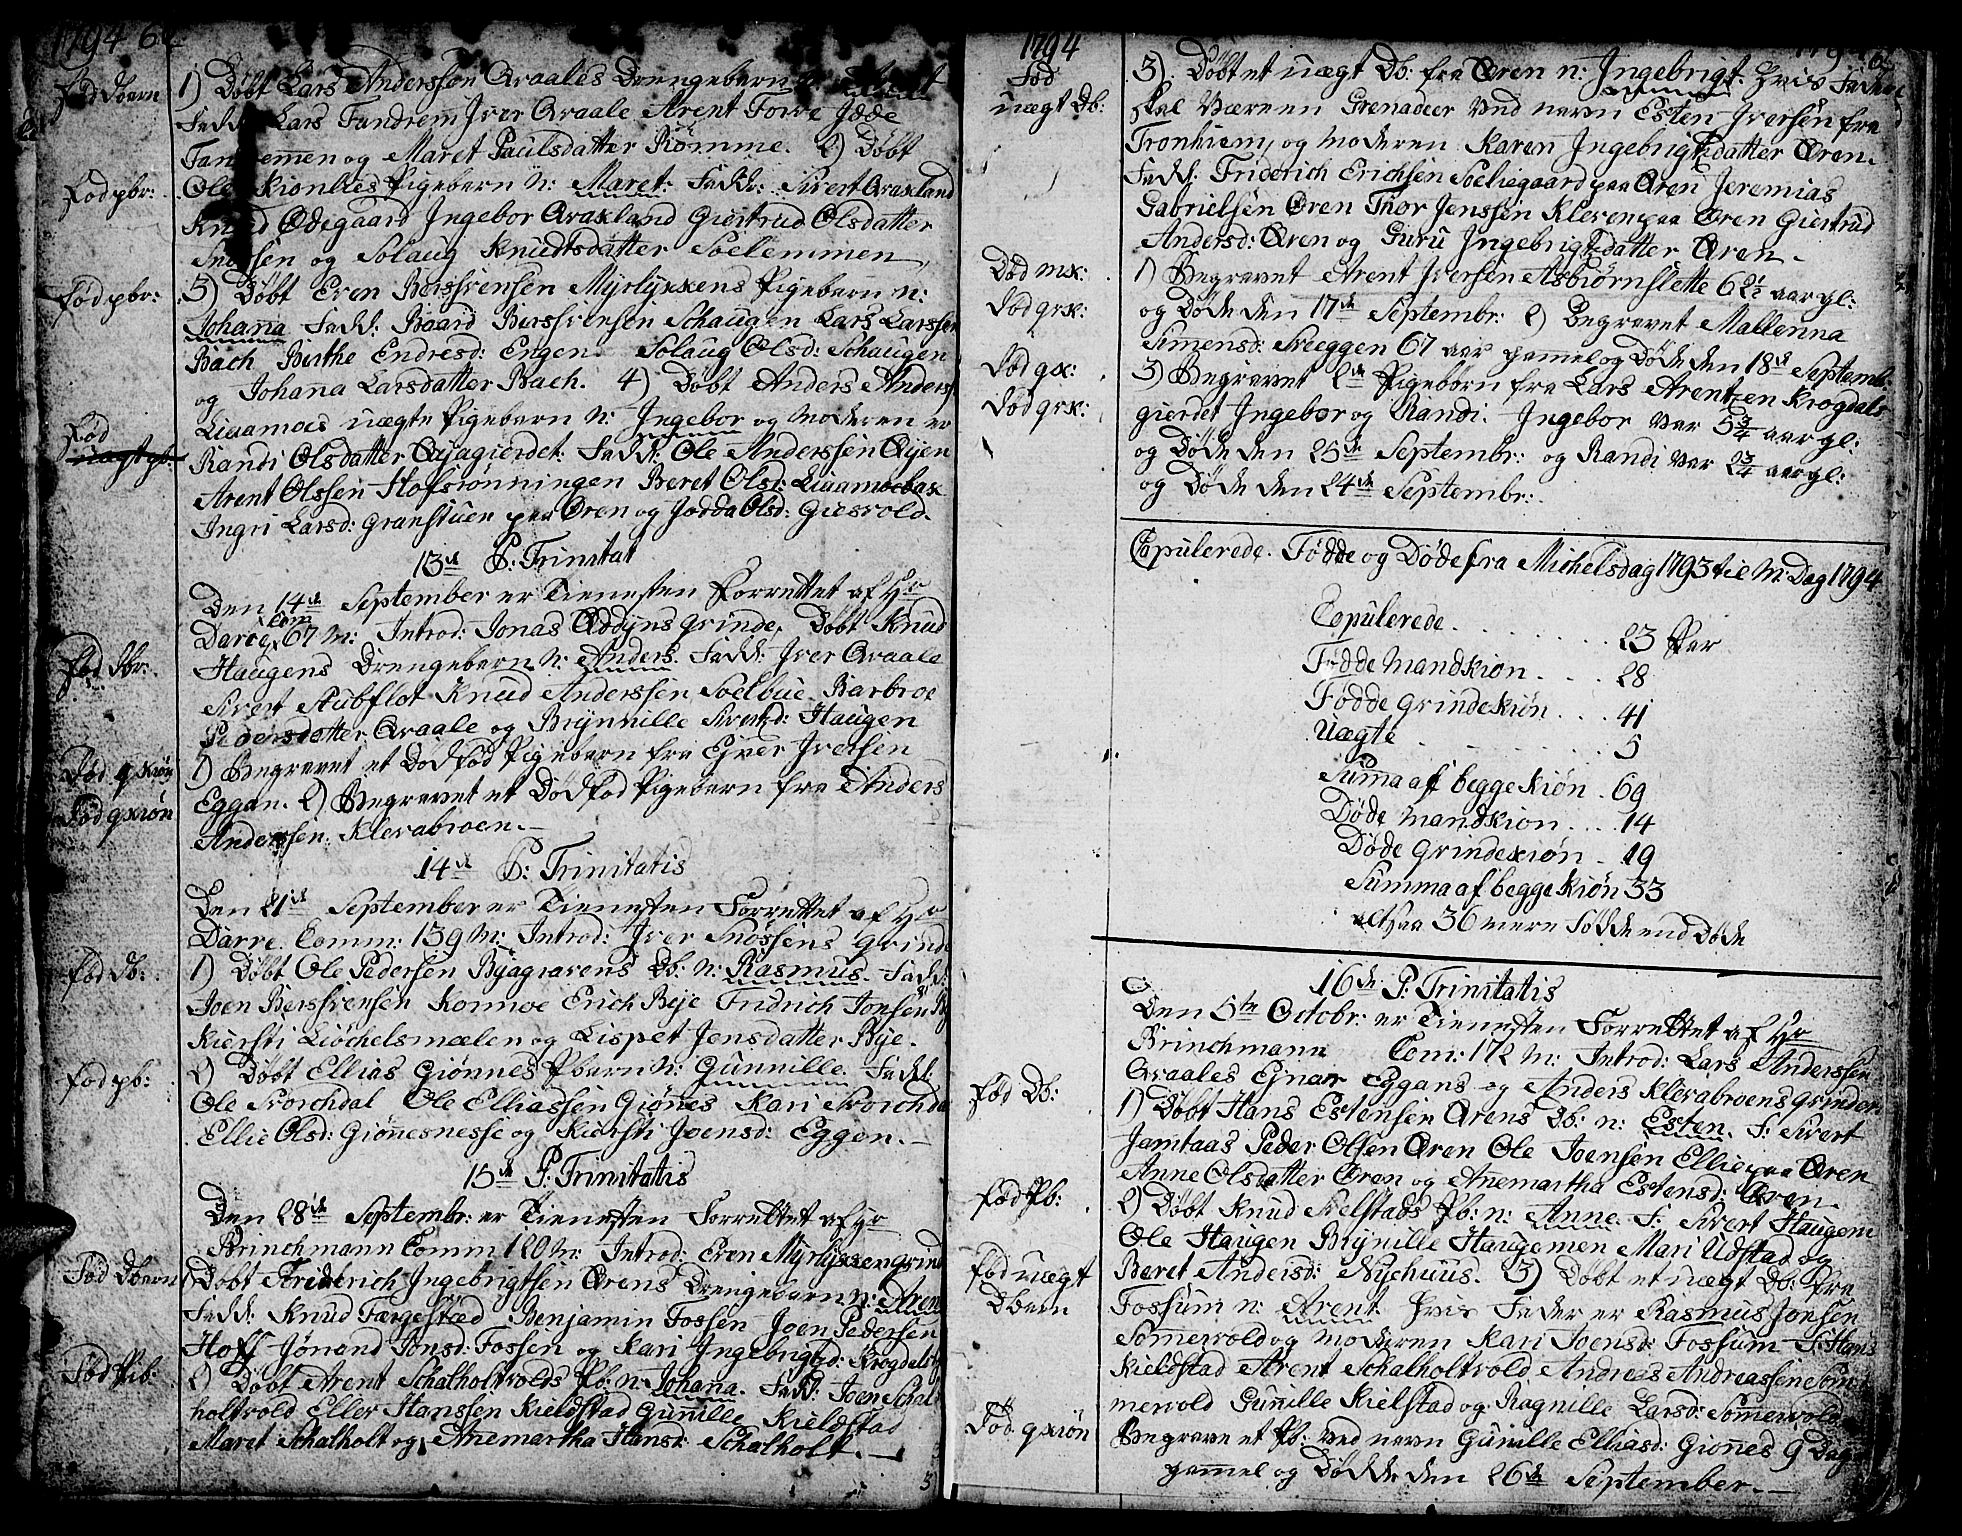 1794 6
Fød Dbarn
1) Døbt Lars Anderssøn Qvaales Drengebarn
Fadd: Lars Tandrem Iver Qvaale Arent Forve Jdde
Tandremmen og Maret Paulsdatter Rømme. 2) Døbt
Fød pbr:
Ole Skionhes Pigebarn N: Maret: Fadd: Sivert Qvaxland
Knud Ødegaard Ingebor Qvaxland Giertrud Olsdatter
Snøssen og Solaug Knudtsdatter Soelemmen
Fød pbr:
3) Døbt Even Berssvensen Myrlykkens Pigebarn N:
Johana Fadd: Baard Berssvensen Schaugen Lars Larssen
Bach Berthe Endresd: Engen Solaug Olsd: Schaugen
og Johana Larsdatter Bach. 4) Døbt Anders Anders
Fød
uægt pb:
Liaamoes uægte Pigebarn N: Ingebor og Moderen er
Randi Olsdatter Qyagierdet: Fadd: Ole Anderssen Qyen
Arent Olssen Hofsrønningen Beret Olsd: Liaamoebak
Ingri Larsd: Granstuen paa Øren og Jødda Olsd: Giesvold.
13de P: Trinitat
Den 14de September er Tienesten Forrettet af Hr
Darre, Com 67 M: Introd: Jonas Oddyns Grinde, Døbt Knud
Fød Dbr:
Haugens Drengebarn N: Anders. Fadd: Iver Qvaale
Sivert Stubflot Knud Anderssen Soelbue Barbroe
Pedersdatter Qvaale og Brynnille Sivertsd: Haugen
Død q kiøn
1) Begravet et Dødfød Pigebarn fra Ejner Iversen
Død q kiøn
Eggan. 2) Begravet et Dødfød Pigebarn fra Anders
Anderssen Klevabroen.
14de P: Trinitatis
Den 21de September er Tienesten Forrettet af Hr
Darre. Comm: 139 M: Introd: Iver Snøssens Grinde
Fød Db:
1) Døbt Ole Pedersen Byagravens Db: N: Rasmus. Fadd:
Joen Berssvensen Kormoe Erich Beje Fridrich Jonsen
Kiersti Liøchelsmælen og Lispet Jensdatter Bye.
Fød pb:
2) Døbt Ellias Giønnes Pbarn N: Gunnille. Fadd:
Ole Storchdal Ole Elliassen Giønes Kari Storchdal
Ellie Olsd: Giønnesnesse og Kiersti Joensd: Eggen.
15de P: Trinitatis
Den 28de Septembr: er Tienesten Forrettet af Hr
Brinchmann Comm 120 M: Introd: Even Myrlykken grind
Fød Dbarn
1) Døbt Friderich Ingebrigtsen Ørens Drengebarn N: Aren
Fadd: Knud Færgestad Benjamin Fossen Joen Pedersen
Hoff Jønand Jonsd: Fossen og Kari Ingebrigtsd: Krogdals
Fød Pib:
2) Døbt Arent Schalholtvolds Pb: N: Johana. Fadd: Joen Schal
holtvold Eller Hanssen Kieldstad Gunille Kieldstad
Maret Schalholt og Anemartha Hansd: Schalholt.
1794
Fød
uægt Db:
3). Døbt et uægt Db: fra Øren N: Ingebrigt: Hvis Fader
skal være en Grenadeer ved navn Esten Iversen fra
Tronhiem, og Moderen Karen Ingebrigtsdatter Øren.
Fadd: Friderich Erichsen Soeliegaard paa Øren Jeremias
Gabrielsen Øren Thor Jenssen Kleven paa Øren Giertrud
Andersd: Øren og Guru Ingebrigtsdatter Øren
Død mk:
1) Begravet Arent Iversen Asbiørnslette 6 1/2 aar gl:
Død qvk:
og Døde den 17de Septembr: 2) Begravet Mallenna
Simensd: Sveggen 67 aar gammel og Døde den 18de Septemb:
Død qk:
3) Begravet 2de Pigebørn fra Lars Arentzen Krogdals
Død qvk:
gierdet Ingebor og Randi. Ingebor var 5 3/4 aar gl:
og Døde den 25de Septembr: og Randi var 2 3/4 aar gl:
og Døde den 24de Septembr:
Copulerede. Fødde og Døde fra Michelsdag 1793 til M: Dag 1794
Copulerede. . . . . . . 23 Par
Fødde Mandkion . . . . 28
Fødde Qvindekiøn . . . 41
Uægte . . . . . . . 5
Summa af begge kiøn . 69
Døde Mandkion . . . 14
Døde Qvindekiøn . 19
Summa af begge kiøn 33
altsaa 36 meere Fødde end Døde
16de P: Trinitatis
Den 5te Octobr: er Tienesten Forrettet af Hr
Brinchmann Com: 172 M: Introd: Lars Anderssen
Qvaales Ejnar Eggans og Anders Klevabroens Grinder
Fød Db:
1) Døbt Hans Estensen Ørens Db: N: Esten. F: Sivert
Jamtaas Peder Olsen Øren Ole Joensen Ellie paa Øren
Anne Olsdatter Øren og Anemartha Estensd: Øren
Fød Pb:
2) Døbt Knud Kielstads Pb: N: Anne. F: Sivert Haugem
Ole Haugen Brynille Haugemen Mari Udstad og
Fød uægt
Dbarn
Beret Andersd: Nyehuus. 3) Døbt et uægt Db: fra
Fossum N: Arent Hvis Fader er Rasmus Jonsen
Somervold og Moderen Kari Joensd: Fossum F: Hans
Kieldstad Arent Schalholtvold Andreas Andreassen Som
mervold Gunille Kielstad og Ragnille Larsd: Sommervold
Død q kiøn
Begravet et Pb: ved navn Gunille Elliasd: Gionnes 9 Dage
gammel og Død den 26de September.